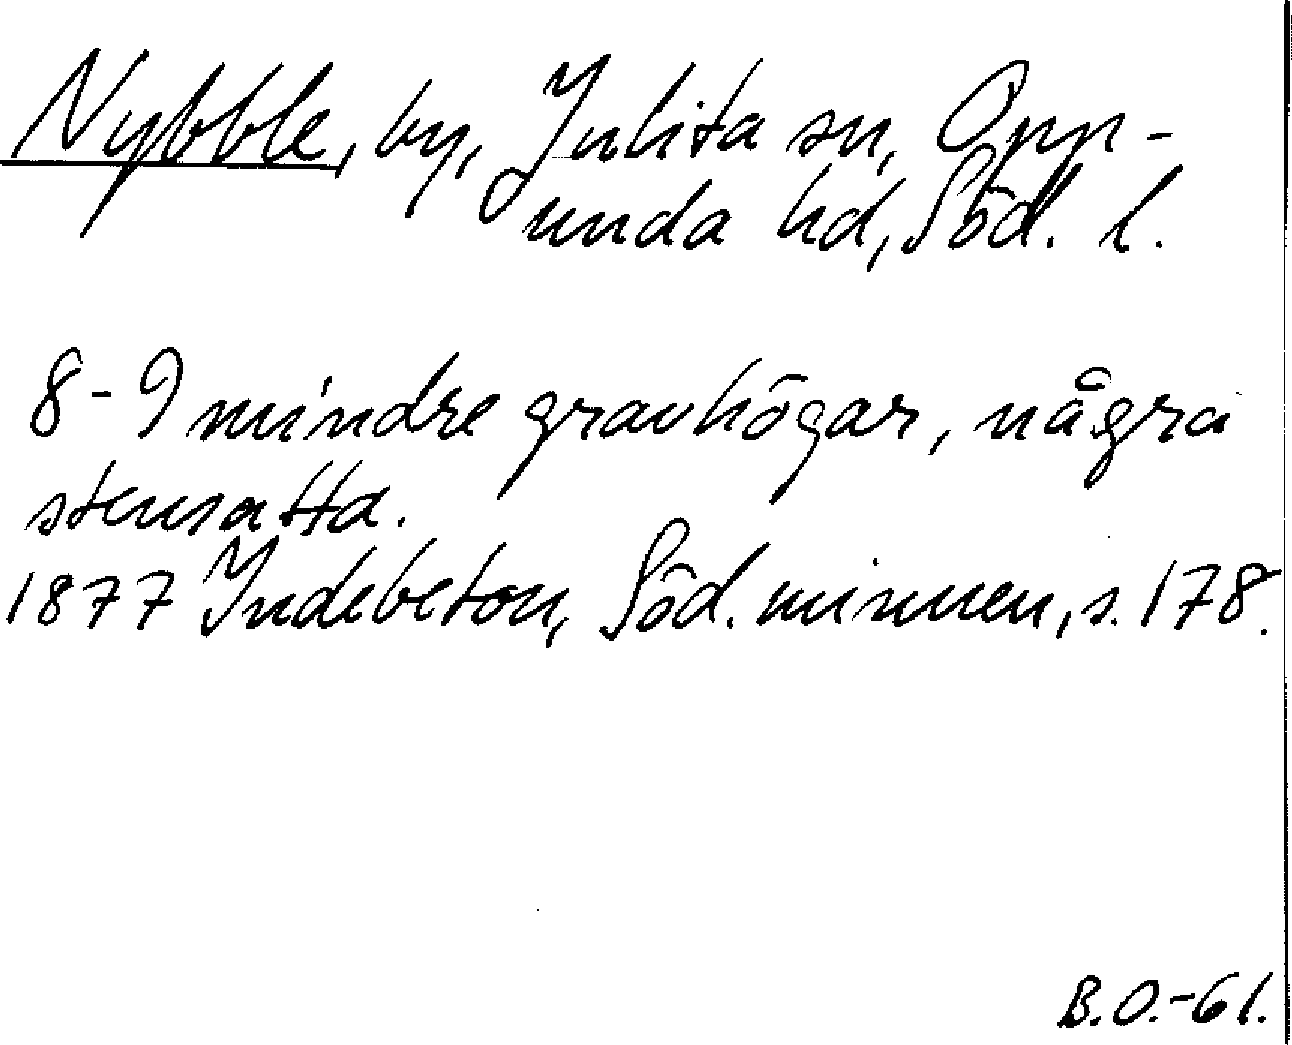 Nybble, by, Julita sn, Opp-
unda hd, Söd. l.
8-9 mindre gravhögar, några
stensatta.
1877 Indebetou, Söd. minnen, s. 178.
B.O.-61.